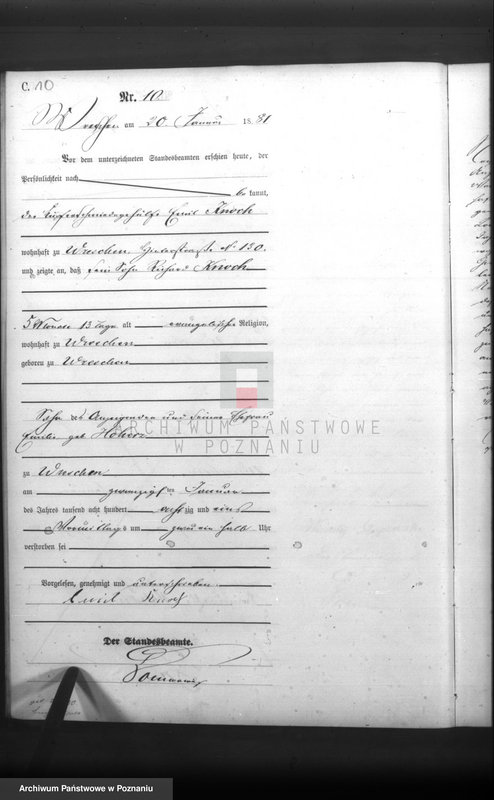 C. 10
Nr. 10
Wreschen am 20. Januar 1881
Vor dem unterzeichneten Standesbeamten erschien heute, der
Persönlichkeit nach
be kannt,
der Kupferschmiedegehülfe Emil Knoch
wohnhaft zu Wreschen, Hinterstraße N. 130.
und zeigte an, daß sein Sohn Richard Knoch
5 Monate 13 Tage alt evangelischer Religion,
wohnhaft zu Wreschen
geboren zu Wreschen
Sohn des Anzeigenden und seiner Ehefrau
geb.
zu Wreschen
am zwanzigsten Januar
des Jahres tausend acht hundert achtzig und eins
Vormittags um zwei ein halb Uhr
verstorben sei
Vorgelesen, genehmigt und unterschrieben
Emil Knoch
Der Standesbeamte.
ARCHIWUM PAŃSTWOWE
W POZNANIU
Archiwum Państwowe w Poznaniu